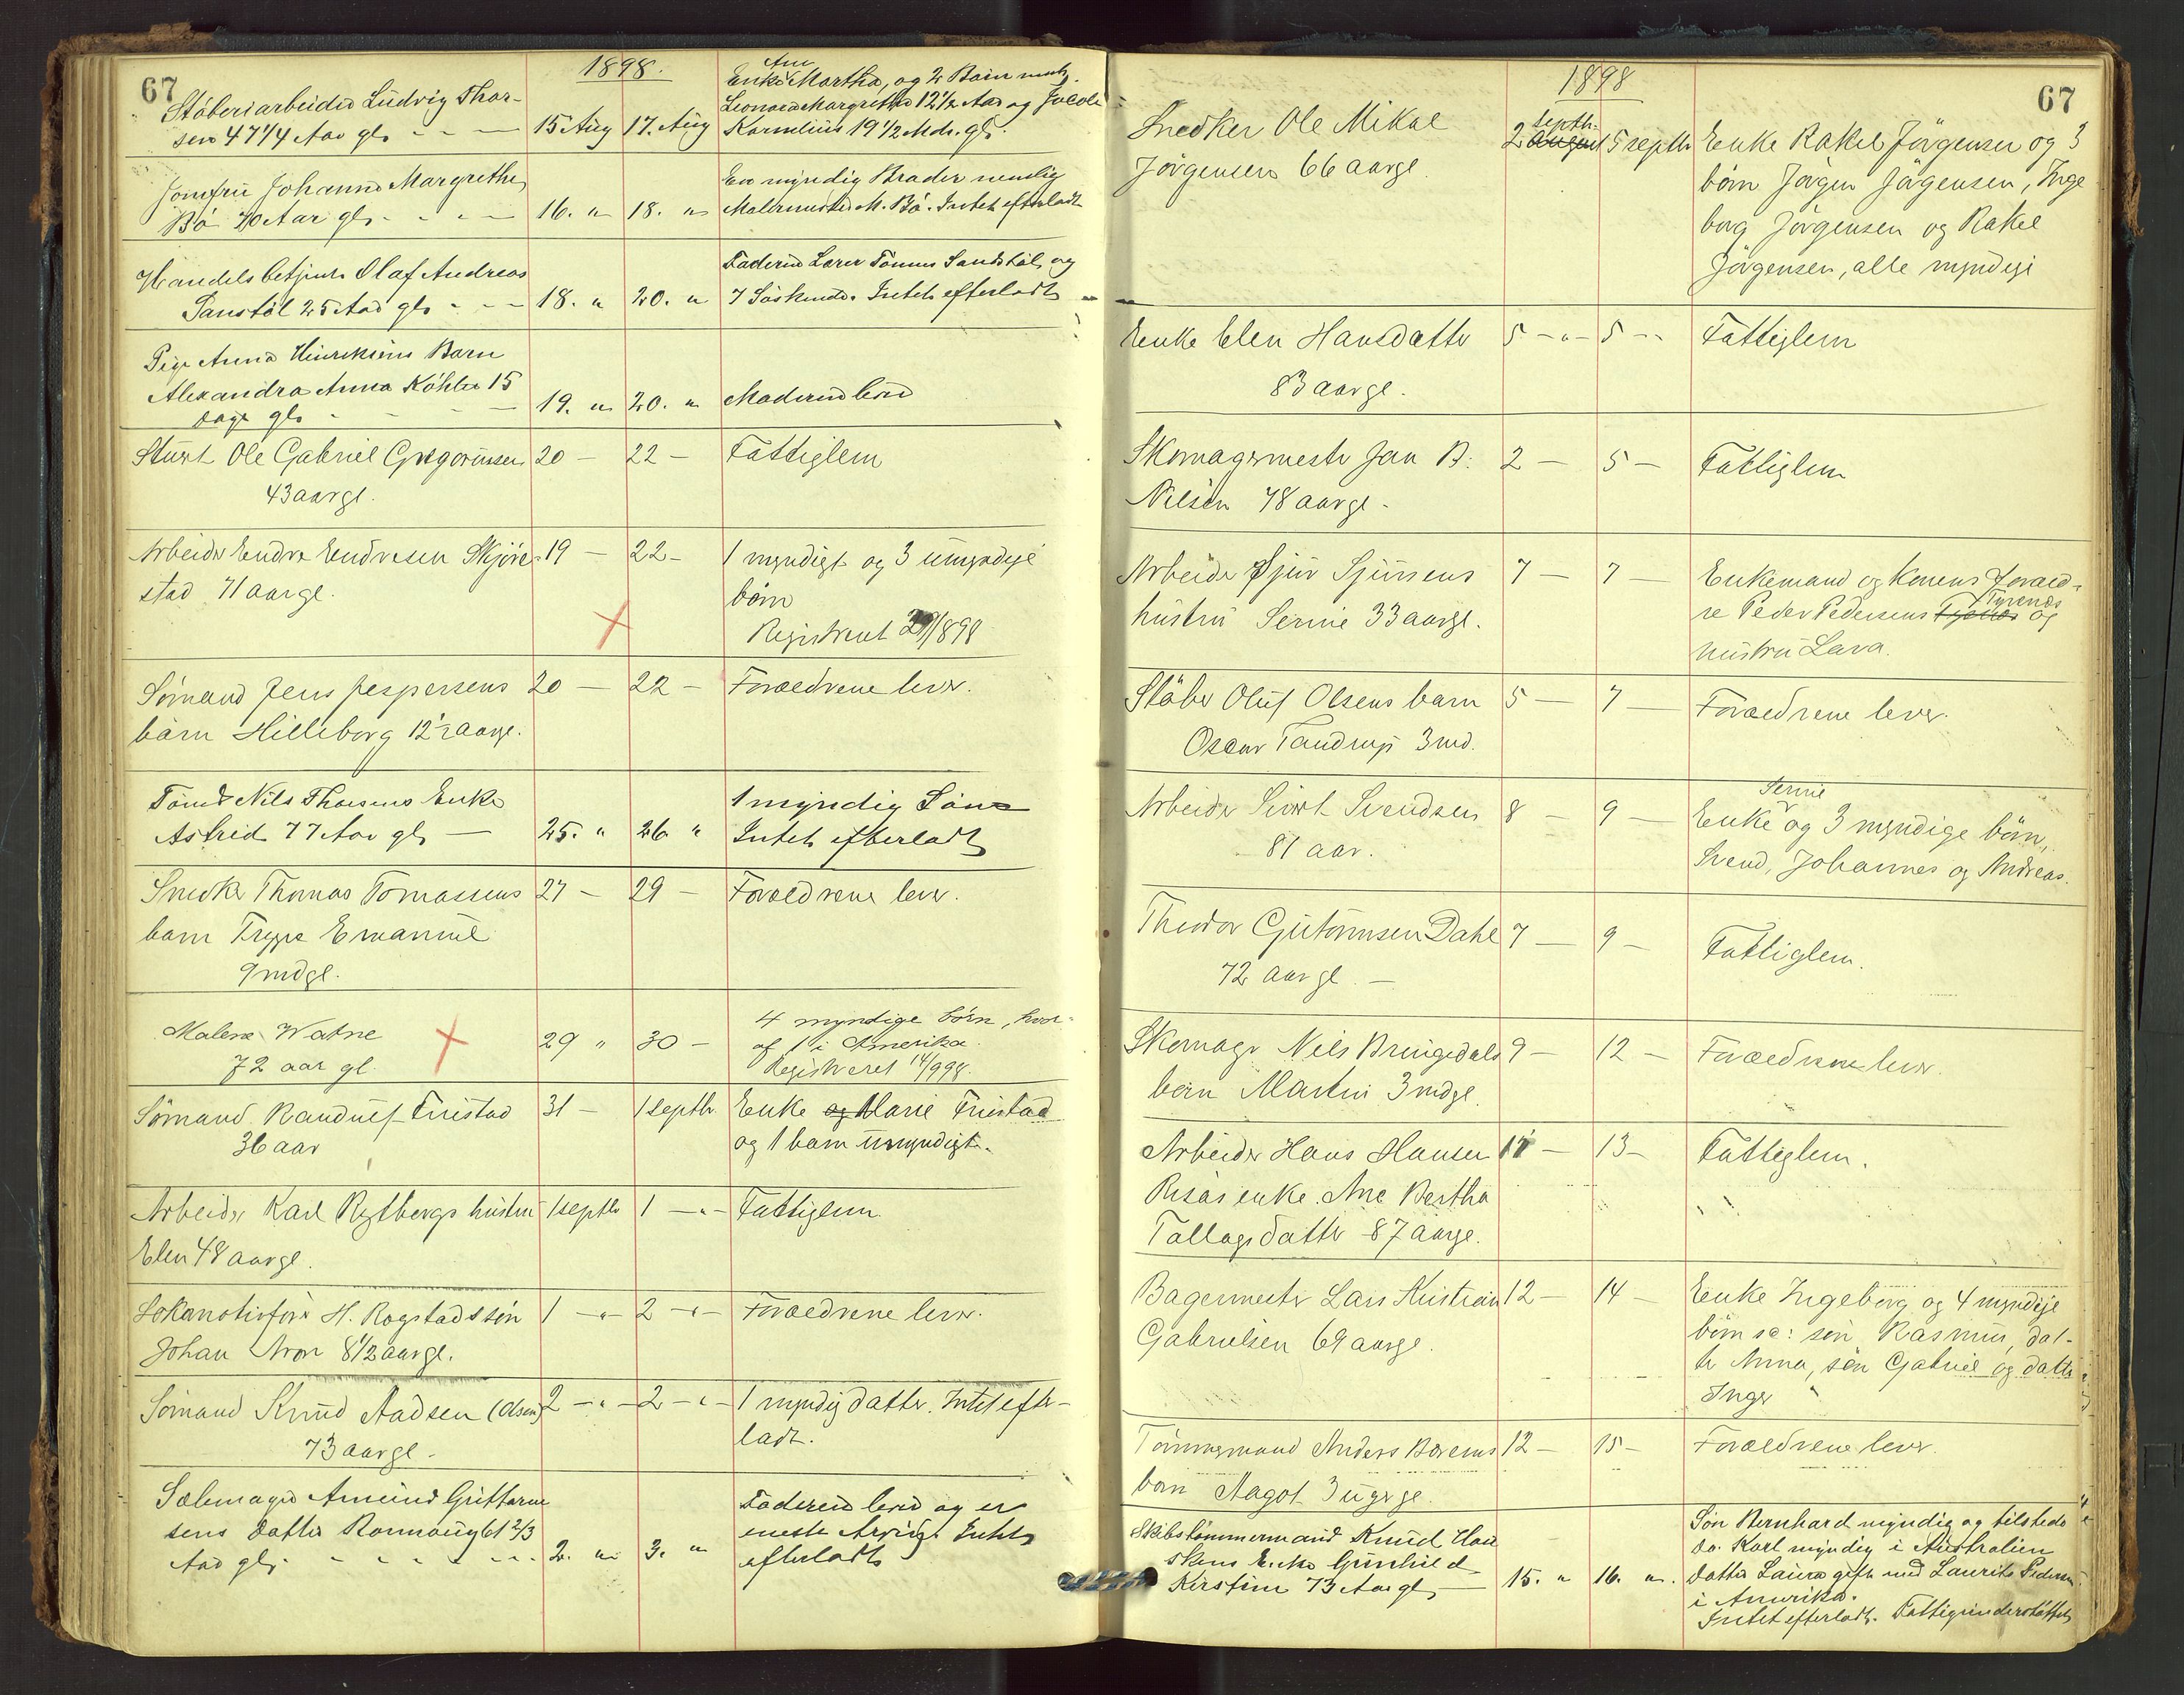 67
1898.
Støberiarbeider Ludvig Thor-
sen 47 1/4 Aar gl. - - — 15 Aug 17. Aug
Ane
Enke Martha, og 2 Børn
Leonora Margrethe 12 1/2 Aar og Jacob
Kornelius 19 1/2 Mdr. gl.
Jomfru Johanne Margrethe
Bø 70 Aar gl. - - - — 16. " 18. "
En myndig Broder nemlig
Malermester M. Bø. Intet efterladt
Handelsbetjent Olaf Andreas
Sanstøl 25 Aar gl. - - — 18. " 20. "
Faderen Lærer Tønnes Sandstøl og
7 Søskende. Intet efterladt
Pige Anna Hinriksens Barn
Alexandra Anna Köhler 15
Dage gl. - - - — 19. " 20. " Moderen lever
Stuert Ole Gabriel Gregoriussen 20 — 22 — Fattiglem
43 aargl.
Arbeider Endre Endresen Skjøre- 19 — 22 — 1 myndigt og 3 umyndige
stad 71 aargl.
børn
Registreret 29/898
Sømand Jens Jespersens 20 — 22 — Forældrene lever.
barn Hilleborg 12 1/2 aargl.
Tømr Nils Thorsens Enke
Astrid 77 Aar gl. — 25. " 26 "
1 myndig Søn
Intet efterladt
Snedker Thomas Tomassens 27 — 29 — Forældrene lever.
barn Trygve Emanuel
9 mdgl.
Malene Watne
72 aar gl. 29 " 30 —
4 myndige børn, hvor-
af 1 i Amerika.
Registreret 14/998.
Sømand Randulf Tuestad 31 — 1 septbr Enke og Marie Tuestad
36 aar
og 1 barn umyndigt.
Arbeider Karl Rytbergs hustru 1 septbr 1 — " — Fattiglem
Elen 48 aargl.
Lokomotivfører H. Rogstads søn 1 — " — 2 — " — Forældrene lever.
Johan Aron 8 1/2 aargl.
Sømand Knud Aadsen (Olsen) 2 — " — 2 — " — 1 myndig datter. Intet efter-
73 aargl. —
ladt.
Salmager Amund Guttorm
sens Datter Rannaug 61 2/3
Aar gl. - - - - - - 2. " 3. "
Faderen lever og er
eneste Arving. Intet
efterladt
67
1898
Snedker Ole Mikal
Jørgensen 66 aargl.
septbr.
2 august 5 septbr
Enke Rakel Jørgensen og 3
børn Jørgen Jørgensen, Inge
borg Jørgensen og Rakel
Jørgensen, alle myndige
Enke Elen Hansdatter 5 — " — 5 — " Fattiglem
83 aargl.
Skomagermester Jan B. 2 — 5 — Fattiglem
Nilsen 78 aargl. -
Arbeider Sjur Sjursens 7 — 7 —
hustru Serine 33 aargl.
Enkemand og konens foræld-
re Peder Pedersens Tysnes Tyrenes og
hustru Lava.
Støber Oluf Olsens barn 5 — 7 — Forældrene lever.
Oscar Tandrup 3 md.
Arbeider Sivert Svendsen 8 — 9 —
81 aar.
Serine
Enke og 3 myndige børn,
Svend, Johannes og Andreas.
Theodor Guttormsen Dahl 7 — 9 — Fattiglem.
72 aar gl. —
Skomager Nils Bringedals 9 — 12 — Forældrene lever.
barn Martin 3 mdgl.
Arbeider Hans Hansen 11 — 13 — Fattiglem.
Risås enke. Ane Bertha
Tallagsdatter 87 aargl.
Bagermester Lars Kristian 12 — 14 —
Gabrielsen 69 aargl.
Enke Ingeborg og 4 myndige
børn sc: søn Rasmus, dat-
ter Anna, søn Gabriel og datter
Inger
Tømmermand Anders Børens 12 — 15 — Forældrene lever.
barn Aagot 3 uger gl.
Skibstømmermand Knud Hau
skens Enke Gunhild
Kirstine 73 Aar gl. — 15. " 16. "
Søn Bernhard myndig og tilstede
do. Karl myndig i Australien
Datter Laura gift med Laurits Pedersen
i Amerika.
Intet efterladt. Fattigunderstøttet